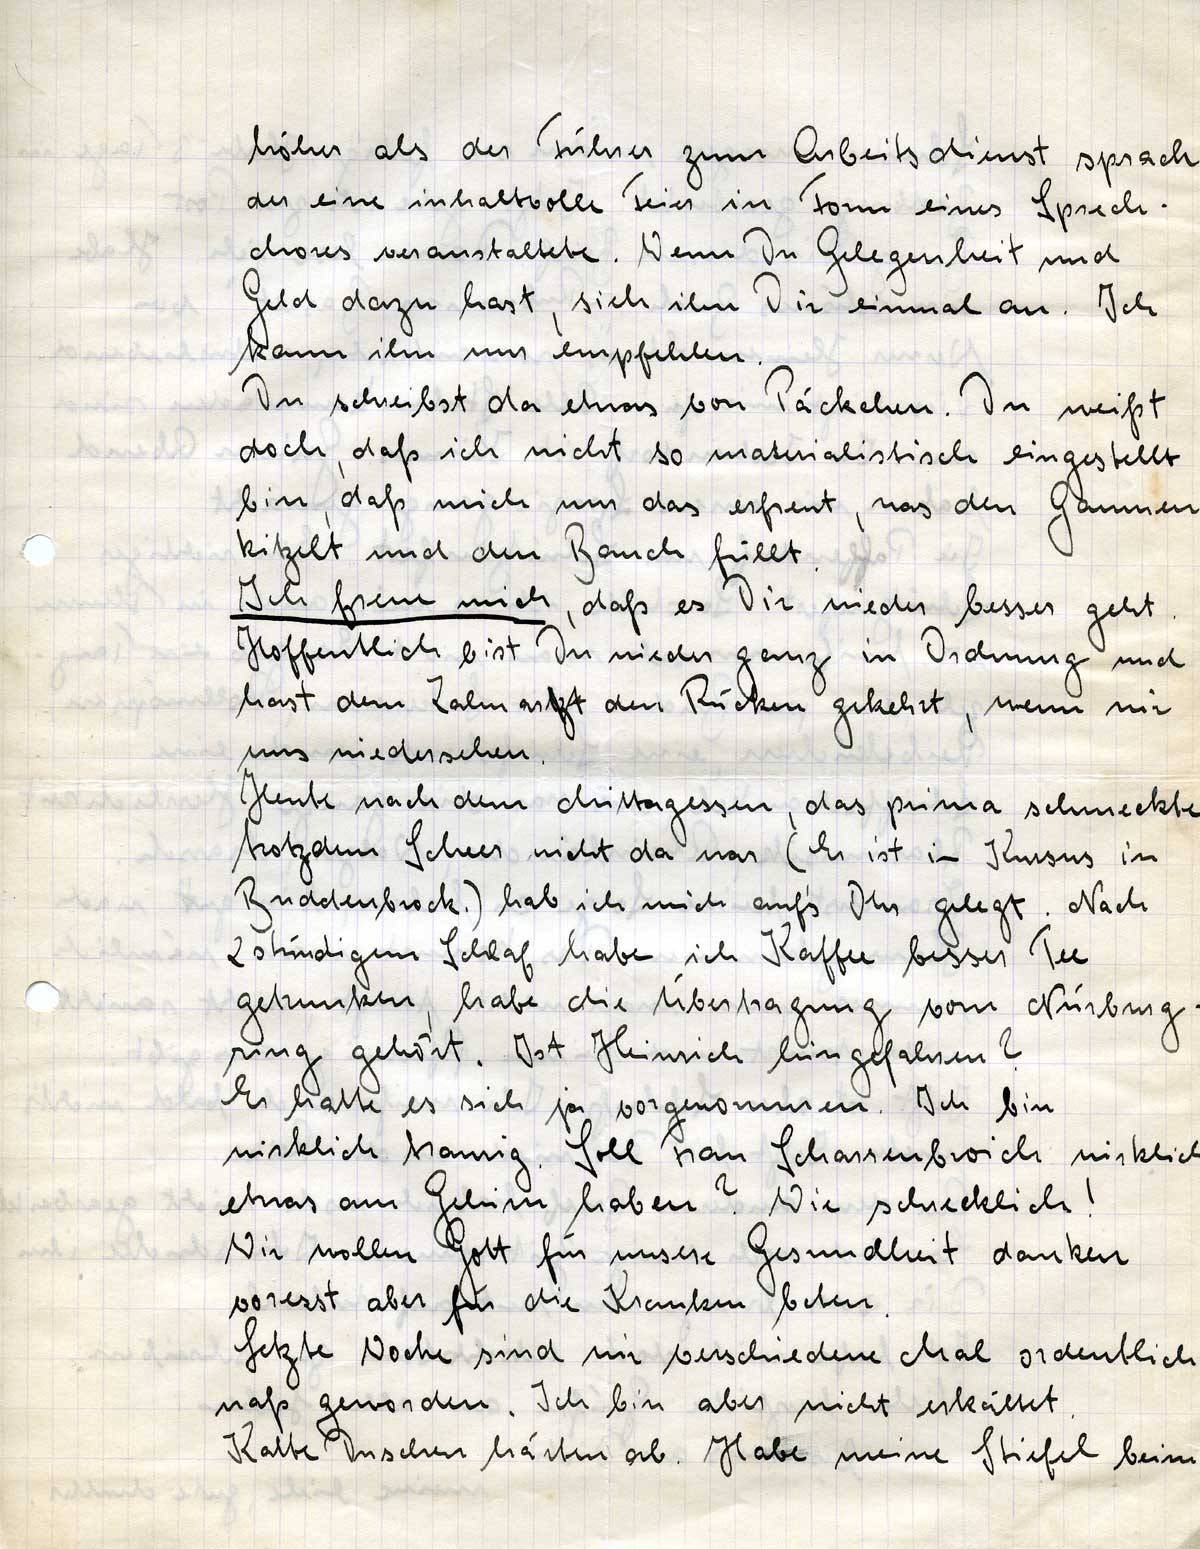 höher als der Führer zum Arbeitsdienst sprach
der eine inhaltvolle Feier in Form eines Sprech-
chores veranstaltete. Wenn Du Gelegenheit und
Geld dazu hast, sieh ihn Dir einmal an. Ich
kann ihn nur empfehlen.
Du schreibst da etwas von Päckchen. Du weißt
doch, daß ich nicht so materialistisch eingestellt
bin, daß mich nur das erfreut, was den Gaumen
kitzelt und den Bauch füllt.
Ich freue mich, daß es Dir wieder besser geht.
Hoffentlich bist Du wieder ganz in Ordnung und
hast dem Zahnarzt den Rücken gekehrt, wenn wir
uns wiedersehen.
Heute nach dem Mittagessen, das prima schmeckte
trotzdem Scheer nicht da war (Er ist in Kursus in
Buddenbrock.) hab ich mich auf's Ohr gelegt. Nach
2stündigem Schlaf habe ich Kaffee besser Tee
getrunken, habe die Übertragung vom Nürburg-
ring gehört. Ist Heinrich hingefahren?
Er hatte es sich ja vorgenommen. Ich bin
wirklich traurig. Soll Frau Scharrenbroich wirklich
etwas am Gehirn haben? Wie schrecklich!
Wir wollen Gott für unsere Gesundheit danken
vorerst aber für die Kranken beten.
Letzte Woche sind wir verschiedene Mal ordentlich
naß geworden. Ich bin aber nicht erkältet.
Kalte Duschen härten ab. Habe meine Stiefel beim